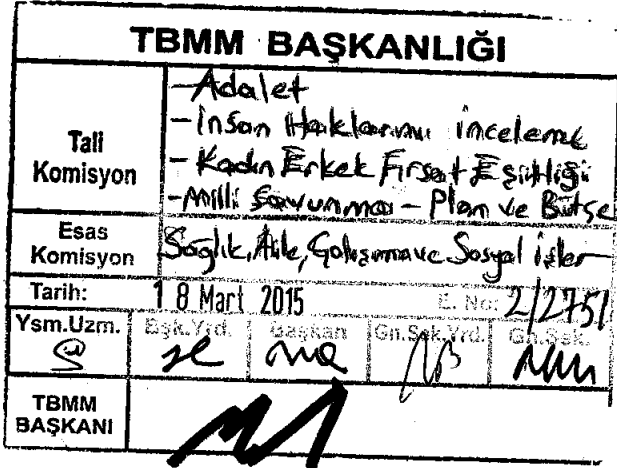 TBMM BAŞKANLIĞI
Tali
Komisyon
-Adalet
-İnsan Haklarını İnceleme
-Kadın Erkek Fırsat Eşitliği
-Milli Savunma - Plan ve Bütçe
Esas
Komisyon
Sağlık, Aile, Çalışma ve Sosyal İşler
Tarih:
18 Mart 2015
E. No: 2/2751
Ysm.Uzm.
Bşk.Yrd.
Başkan
Gn.Sek.Yrd.
Gn.Sek.
TBMM
BAŞKANI